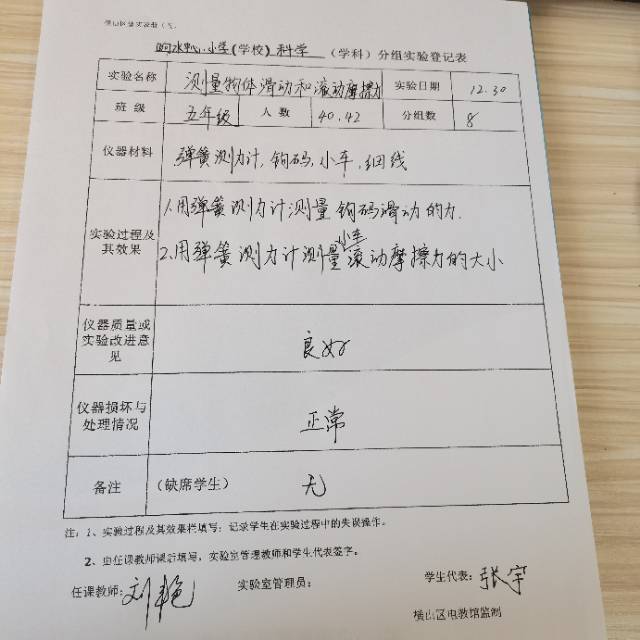 响水中心小学(学校) 科学 (学科) 分组实验登记表
实验名称 测量物体滑动和滚动摩擦力 实验日期 12.30
班 级 五年级 人 数 40.42 分组数 8
仪器材料 弹簧测力计,钩码,小车,细线
实验过程及
其效果
1.用弹簧测力计测量钩码滑动的力.
2.用弹簧测力计测量小车滚动摩擦力的大小
仪器质量或
实验改进意
见
良好
仪器损坏与
处理情况
正常
备注 (缺席学生) 无
注:1、实验过程及其效果栏填写:记录学生在实验过程中的失误操作。
2、由任课教师课后填写,实验室管理教师和学生代表签字。
任课教师: 刘艳 实验室管理员: 学生代表: 张宇
横山区电教馆监制